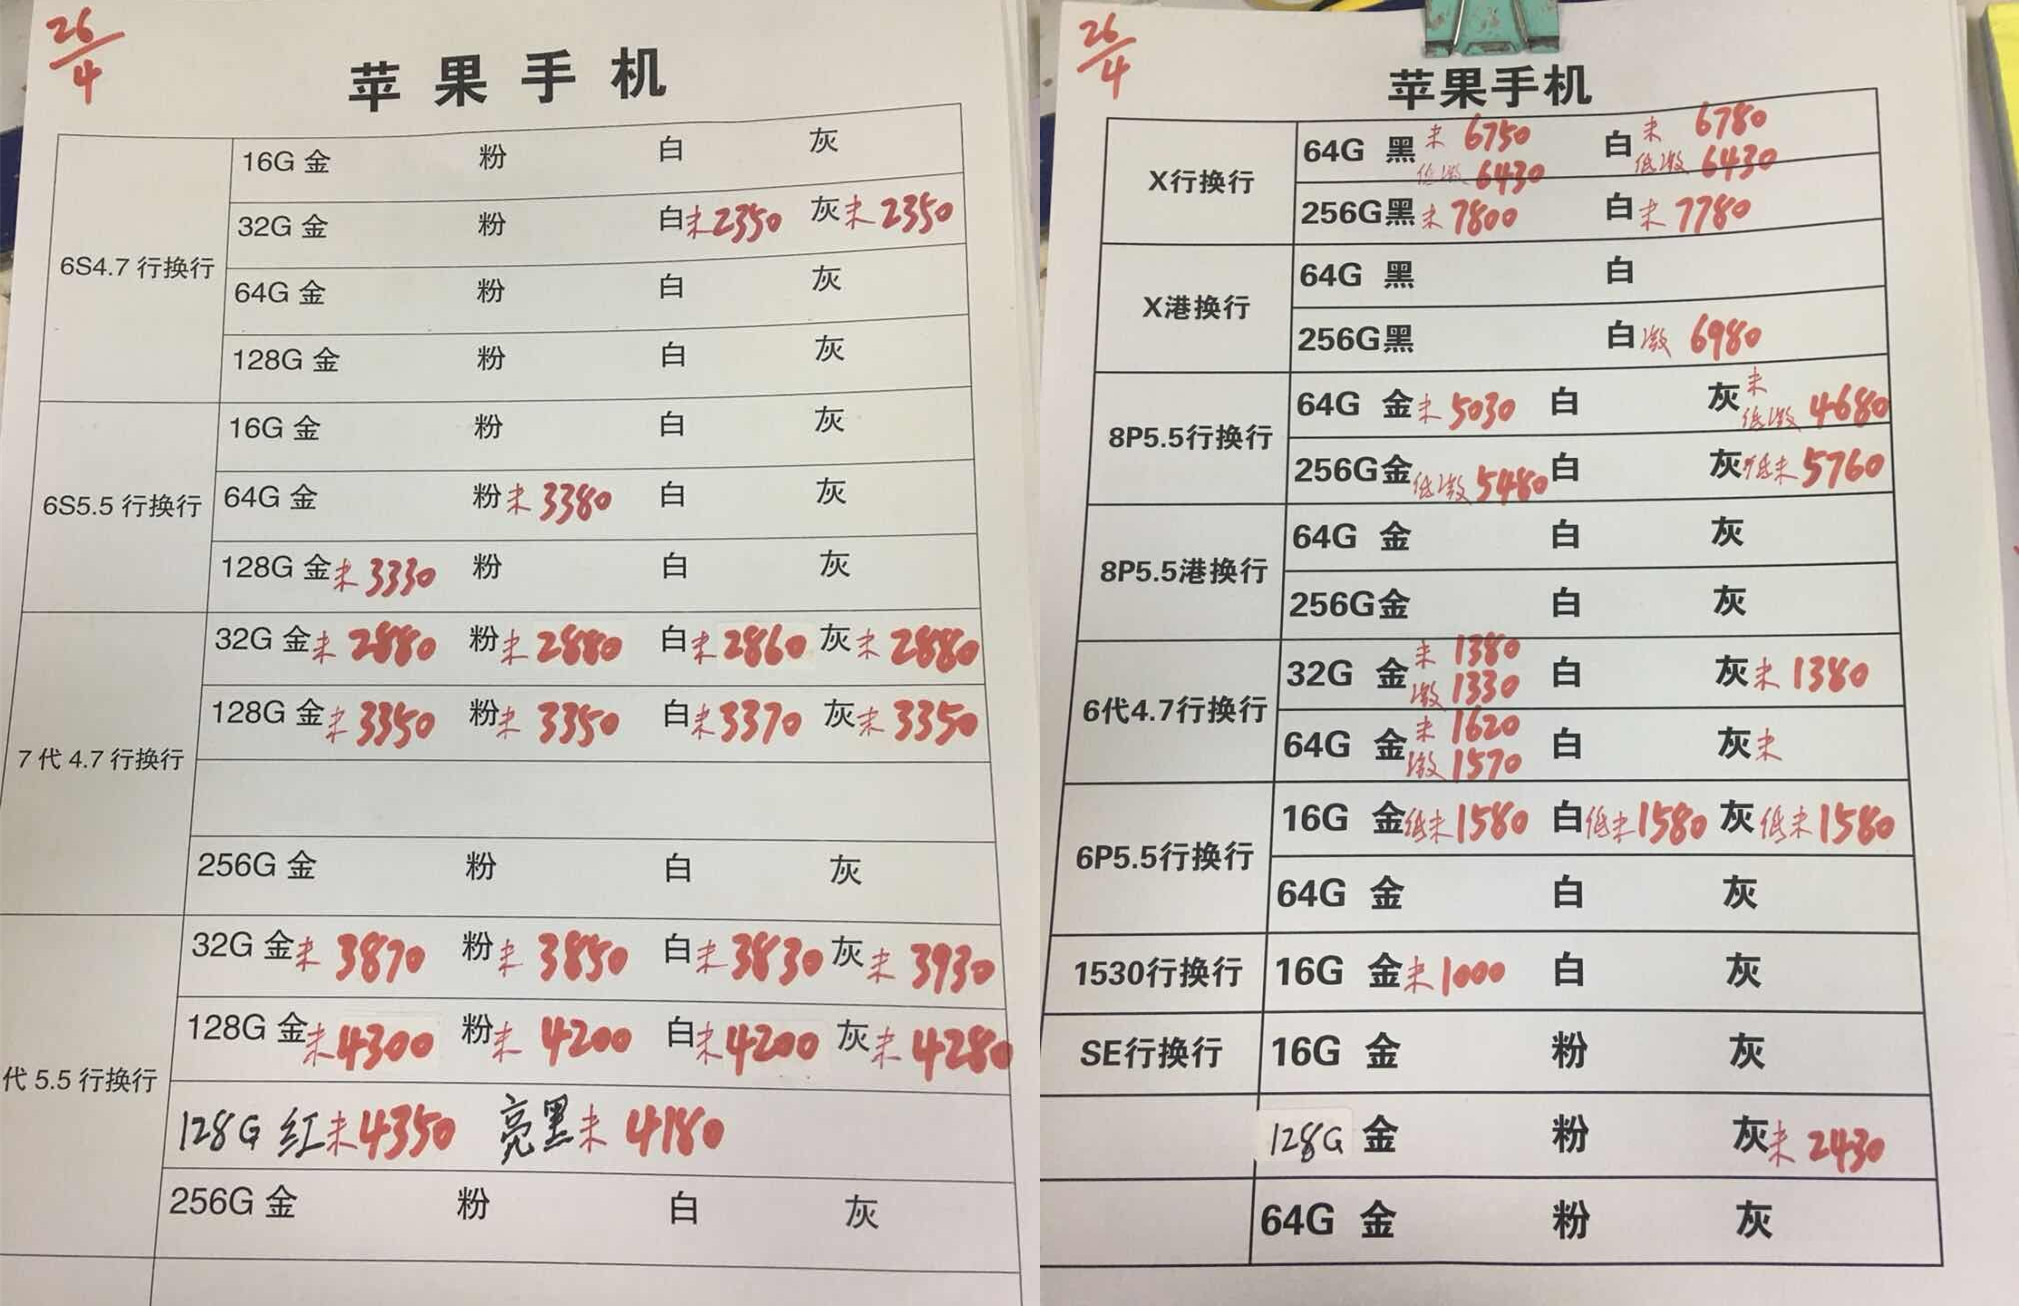 26/4
苹果手机
6S4.7行换行
16G 金 粉 白 灰
32G 金 粉 白未2350 灰未2350
64G 金 粉 白 灰
128G 金 粉 白 灰
6S5.5行换行
16G 金 粉 白 灰
64G 金 粉未3380 白 灰
128G 金未3330 粉 白 灰
7代4.7行换行
32G 金未2880 粉未2880 白未2860 灰未2880
128G 金未3350 粉未3350 白未3370 灰未3350
256G 金 粉 白 灰
代5.5行换行
32G 金未3870 粉未3850 白未3830 灰未3930
128G 金未4300 粉未4200 白未4200 灰未4280
128G 红未4350 亮黑未4180
256G 金 粉 白 灰
26/4
苹果手机
X行换行
64G 黑未6750 白未6780
低激6430 低激6430
256G黑未7800 白未7780
X港换行
64G 黑 白
256G黑 白激6980
8P5.5行换行
64G 金未5030 白 灰未
低激4680
256G金低激5480 白 灰低未5760
8P5.5港换行
64G 金 白 灰
256G金 白 灰
6代4.7行换行
32G 金未1380 白 灰未1380
激1330
64G 金未1620 白 灰未
激1570
6P5.5行换行
16G 金低未1580 白低未1580 灰低未1580
64G 金 白 灰
1530行换行
16G 金未1000 白 灰
SE行换行
16G 金 粉 灰
128G 金 粉 灰未2430
64G 金 粉 灰